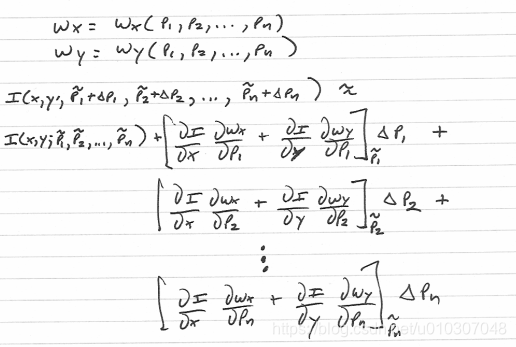 Wx = Wx(P1, P2, ..., Pn)
Wy = Wy(P1, P2, ..., Pn)
I(x,y, P̃1+ΔP1, P̃2+ΔP2, ..., P̃n+ΔPn) ≈
I(x,y; P̃1, P̃2, ..., P̃n) + [∂I/∂x ∂Wx/∂P1 + ∂I/∂y ∂Wy/∂P1]P̃1 ΔP1 +
[∂I/∂x ∂Wx/∂P2 + ∂I/∂y ∂Wy/∂P2]P̃2 ΔP2 +
⋮
[∂I/∂x ∂Wx/∂Pn + ∂I/∂y ∂Wy/∂Pn]P̃n ΔPn
https://blog.csdn.net/u010307048